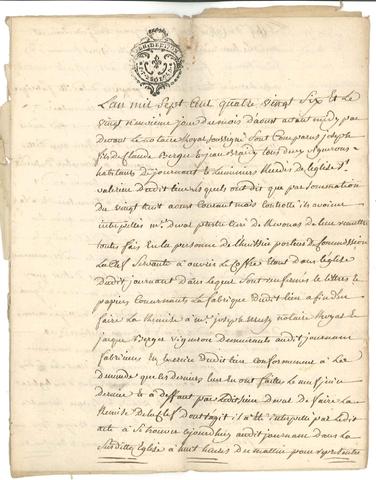 L'an mil sept cent quatre vingt six et le
vingt neuvieme jour du mois d'aoust avant midy par
devant le notaire Royal soussigné sont comparus joseph
fils de Claude Berger & jean tous deux vignerons
habitants de journant & Lumineurs de l'eglise St
valerien dudit lieu lesquels ont dit que par sommation
du vingt huit aoust Courant mais controllé ils avoient
interpellés mr. duval pretre Curé de de leur remettre
toutes fois en la personne de
La Clef Servante a ouvrir le Coffre Etant dans l'eglise
dudit journant dans lequel Sont renfermés les lettres &
papiers Concernants la fabrique dudit lieu a fin d'en
faire la Remise a mr. joseph notaire Royal &
jaque Berger vigneron Demeurants audit journant
fabriciens en Exercice dudit lieu conformement a la
demande que les derniers leur en ont faittes le
dernier & a deffaut par ledit sieur duval de faire la
Remise de la Clef dont s'agit il a été interpellé par ledit
acte a se trouver cejourdhuy audit journant dans la
Surditte Eglise a huit heures du mattin pour representer